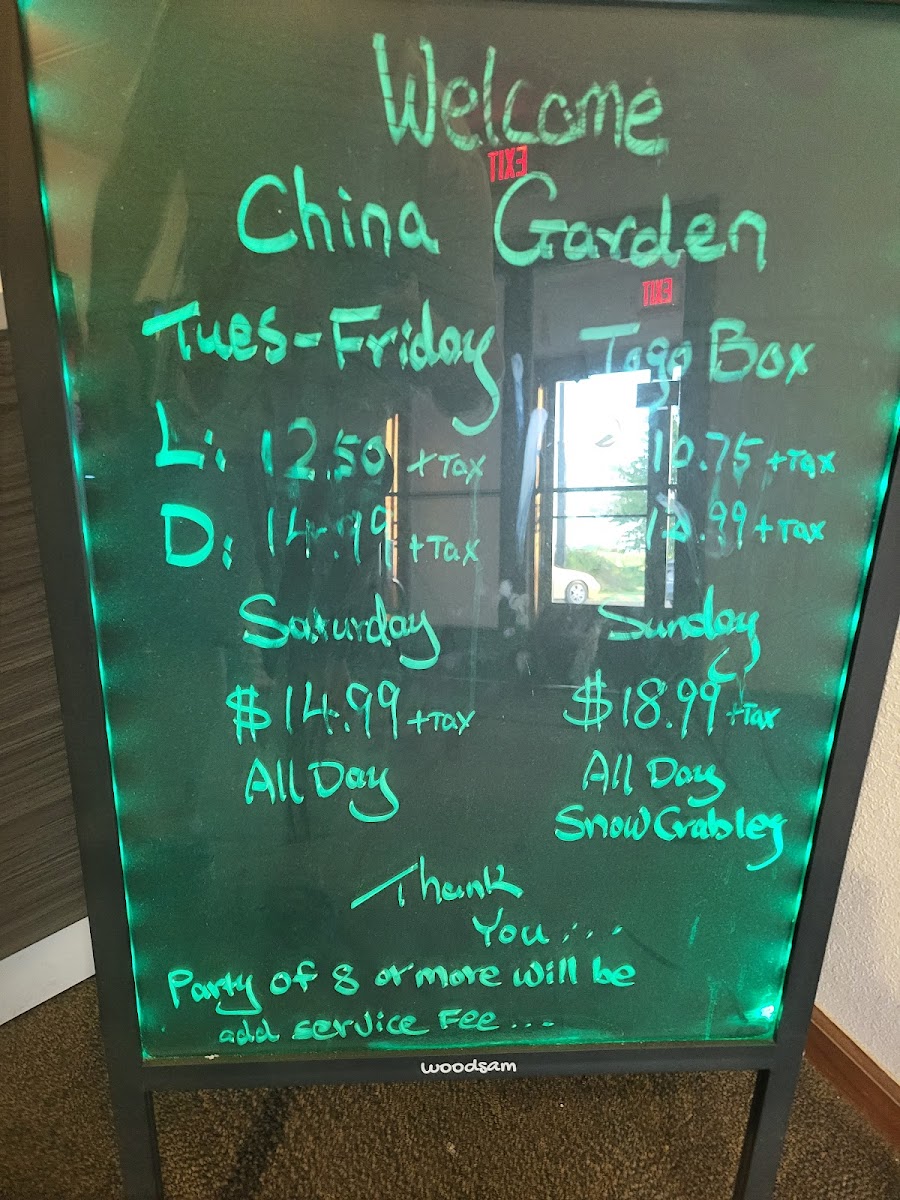 Welcome
EXIT
China Garden
EXIT
Tues-Friday Togo Box
L: 12.50 +Tax 10.75 +Tax
D: 14.99 +Tax +Tax
Saturday Sunday
$14.99 +Tax $18.99 +Tax
All Day All Day
Snow Crabley
Thank
You....
Party of 8 or more will be
add service Fee...
woodsam